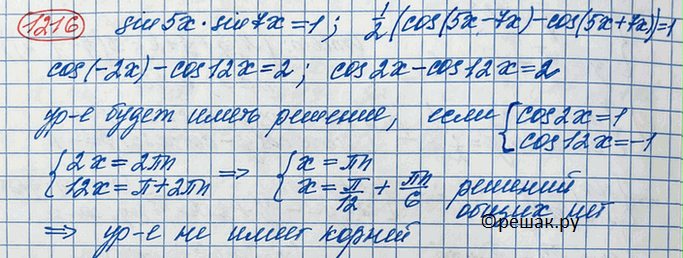 1216 sin 5x · sin 7x = 1 ; 1/2 (cos(5x-7x) - cos(5x+7x)) = 1
cos(-2x) - cos 12x = 2 ; cos 2x - cos 12x = 2
ур-е будет иметь решение, если { cos 2x = 1
cos 12x = -1
{ 2x = 2πn
12x = π + 2πn => { x = πn
x = π/12 + πn/6 решений
общих нет
=> ур-е не имеет корней
©решак.ру